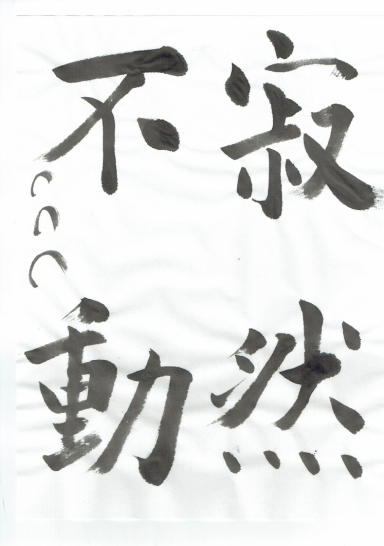 寂然
不動